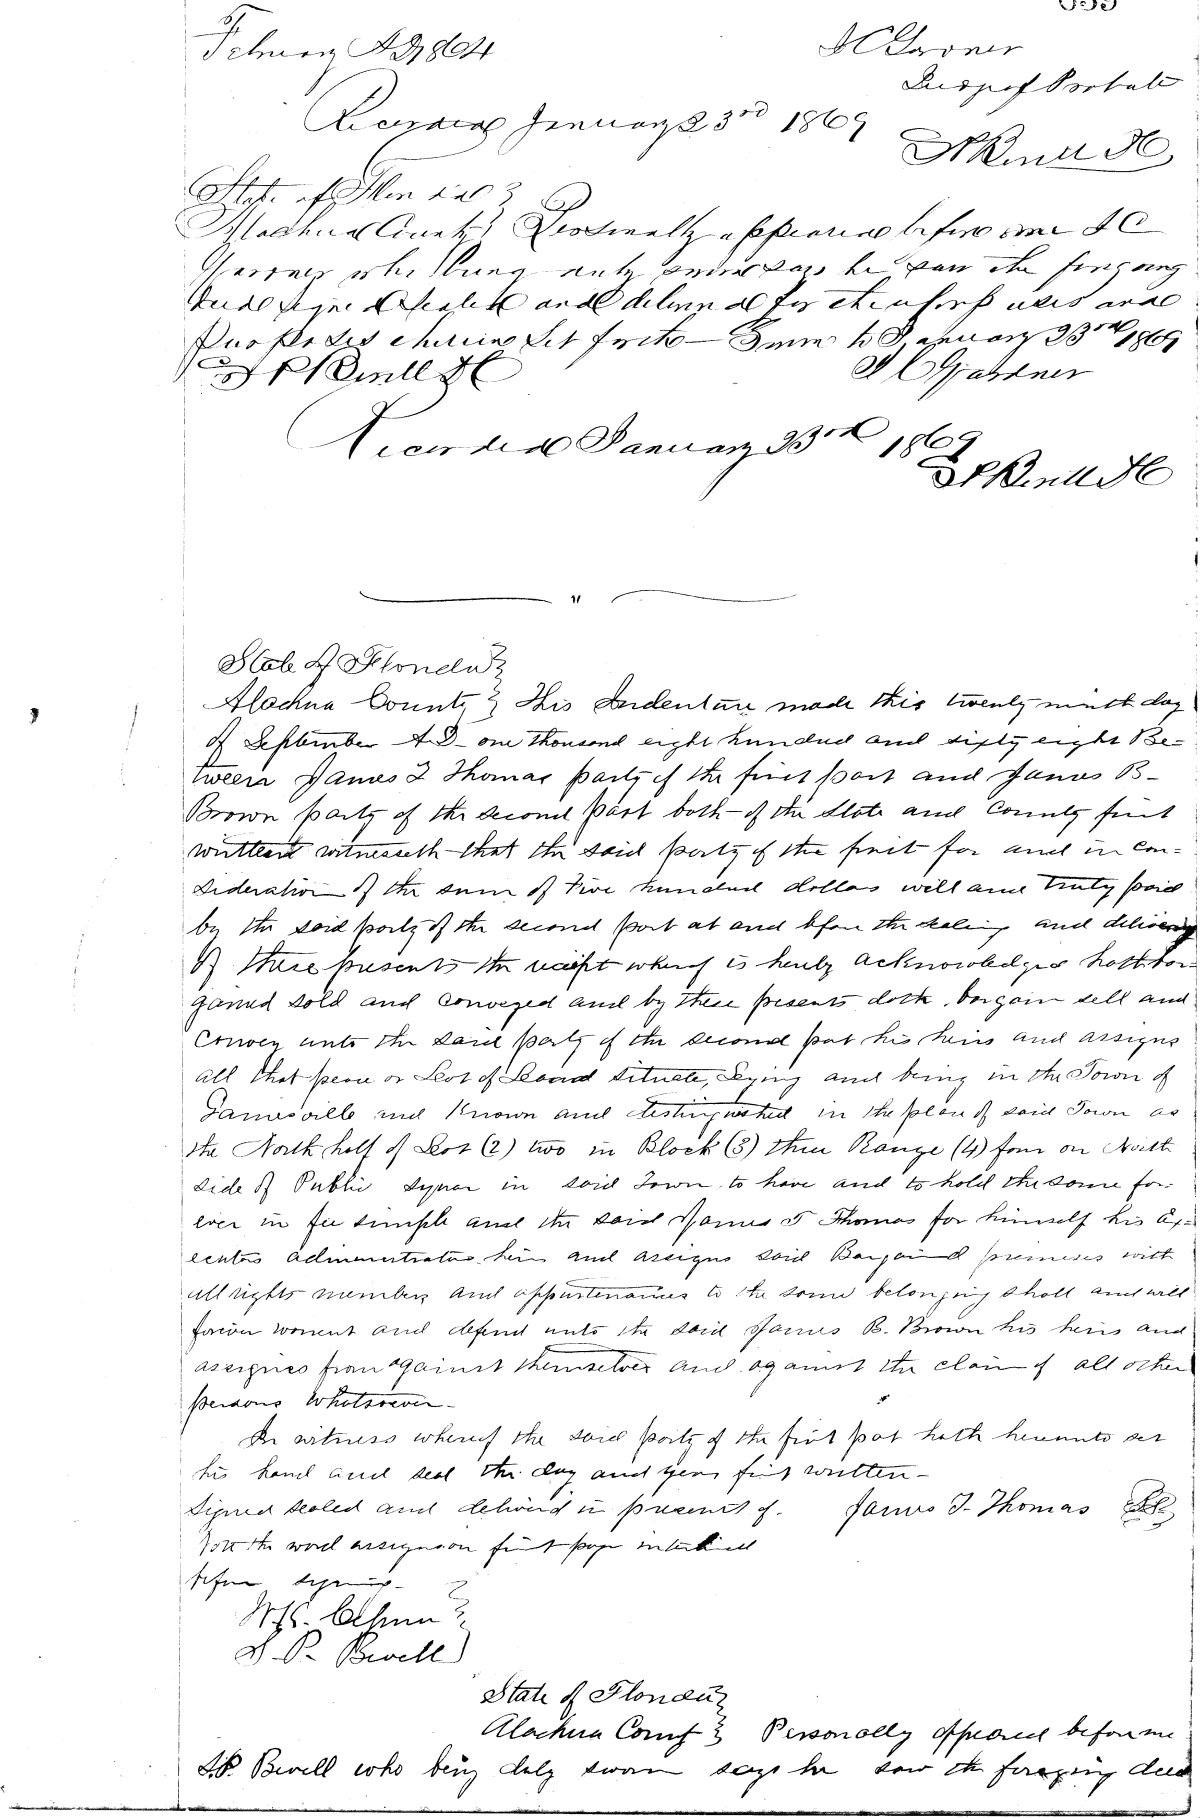 February AD 1864
Judge of Probate
Recorded January 23rd 1869
State of Florida
Alachua County } Personally appeared before me
who being duly sworn says he saw the foregoing
Deed signed sealed and delivered for the uses and
Purposes therein set forth — Sworn to January 23rd 1869
Gardner
Recorded January 23rd 1869
State of Florida }
Alachua County } This Indenture made this twenty ninth day
of September A D - one thousand eight hundred and sixty eight Be=
tween James T Thomas party of the first part and James B-
Brown party of the second part both of the State and County first
written witnesseth that the said party of the first for and in con=
sideration of the sum of Five hundred dollars well and truly paid
by the said party of the second part at and before the sealing and delivery
of these presents the receipt whereof is hereby acknowledged hath bar
gained sold and conveyed and by these presents doth bargain sell and
Convey unto the said party of the second part his heirs and assigns
all that or Lot of Land situate, Lying and being in the Town of
Gainesville and Known and distinguished in the plan of said Town as
the North half of Lot (2) two in Block (3) three Range (4) four on North
side of Public Square in said Town to have and to hold the same for-
ever in fee simple and the said James T Thomas for himself his Ex=
ecutors administrators heirs and assigns said Bargained premises with
all rights members and appurtenances to the same belonging shall and will
forever warrent and defend unto the said James B. Brown his heirs and
assignes from against themselves and against the claim of all other
persons Whatsoever-
In witness whereof the said party of the first part hath hereunto set
his hand and seal the day and year first written-
Signed sealed and delivered in presents of. James T. Thomas
Note the word assigns on first page interlined
before signing-
S. P. Bevill
State of Florida }
Alachua County } Personally appeared before me
S.P. Bevill who being duly sworn says he saw the foregoing deed